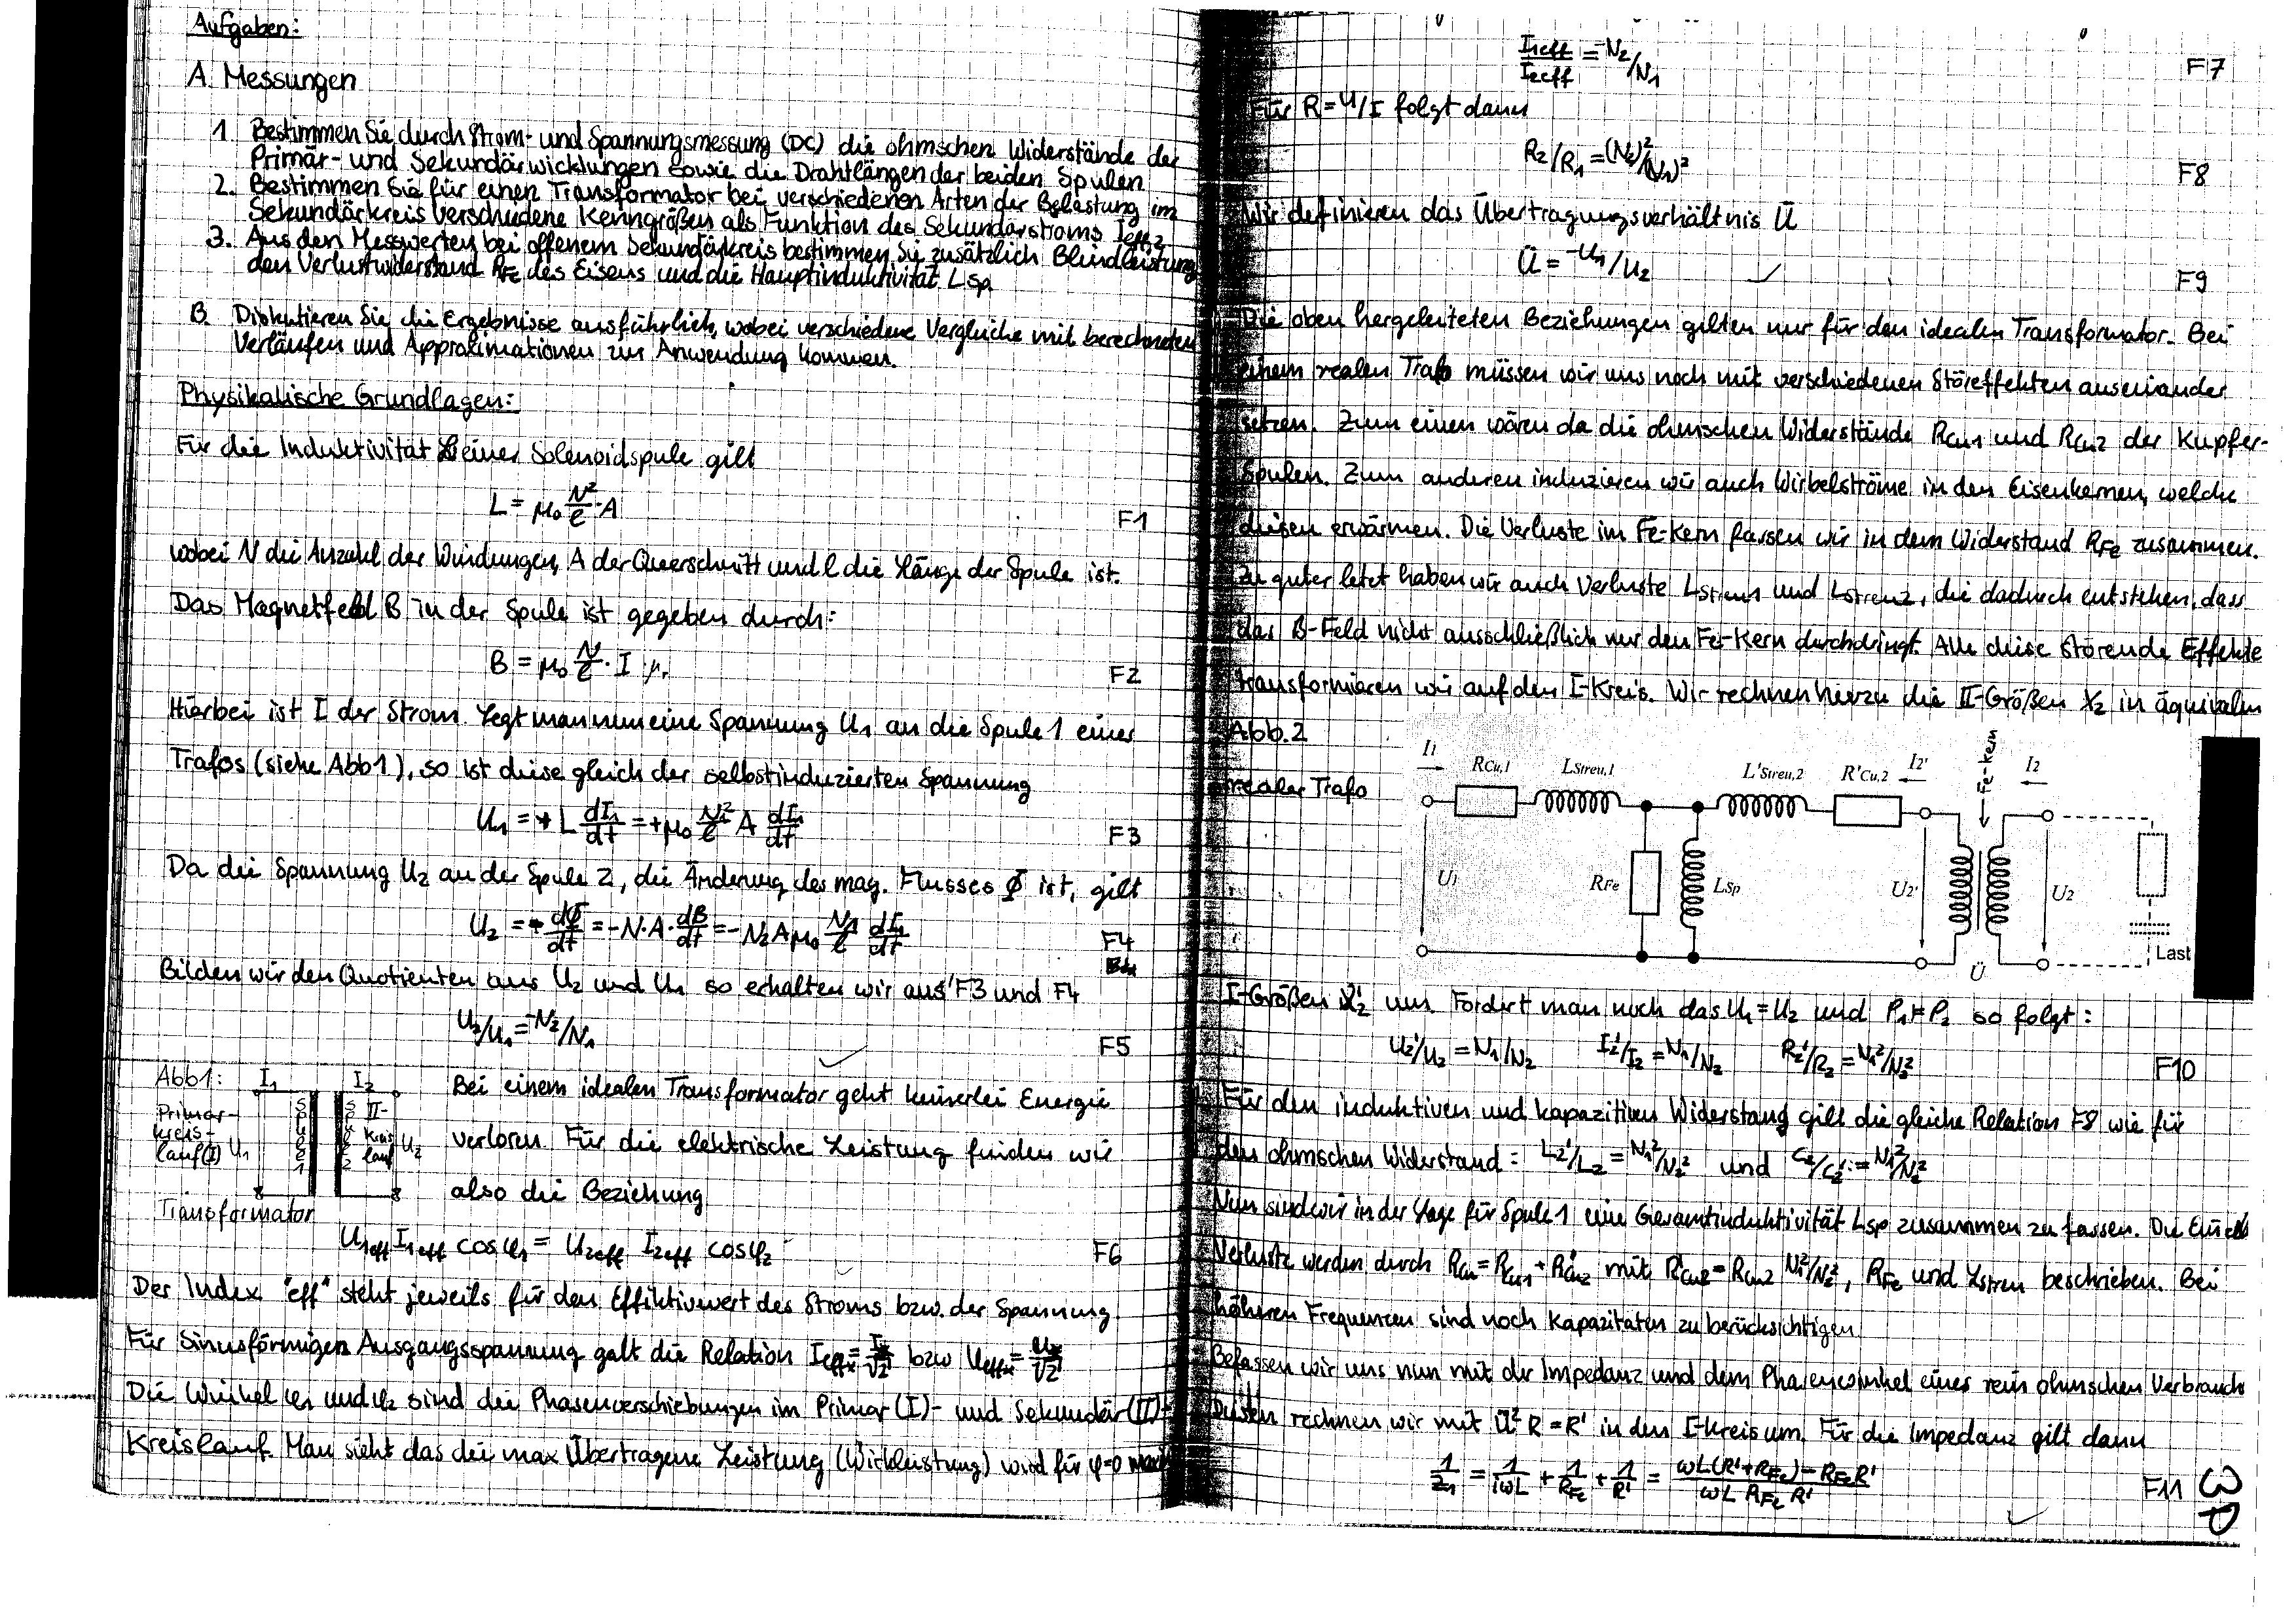 Aufgaben:
A. Messungen
1. Bestimmen Sie durch Strom- und Spannungsmessung (DC) die ohmschen Widerstände der
Primär- und Sekundärwicklungen sowie die Drahtlängen der beiden Spulen
2. Bestimmen Sie für einen Transformator bei verschiedenen Arten der Belastung im
Sekundärkreis verschiedene Kenngrößen als Funktion des Sekundärstroms Ieff,2
3. Aus den Messwerten bei offenem Sekundärkreis bestimmen Sie zusätzlich Blindleistung
den Verlustwiderstand RFe des Eisens und die Hauptinduktivität LSp
B. Diskutieren Sie die Ergebnisse ausführlich, wobei verschiedene Vergleiche mit berechneten
Verläufen und Approximationen zur Anwendung kommen.
Physikalische Grundlagen:
Für die Induktivität L einer Solenoidspule gilt
L = μ₀ N²/l · A F1
wobei N die Anzahl der Windungen, A der Querschnitt und l die Länge der Spule ist.
Das Magnetfeld B in der Spule ist gegeben durch:
B = μ₀ N/l · I F2
Hierbei ist I der Strom. Legt man nun eine Spannung U₁ an die Spule 1 eines
Trafos (siehe Abb1), so ist diese gleich der selbstinduzierten Spannung
U₁ = + L dI₁/dt = + μ₀ N₁²/l A dI₁/dt F3
Da die Spannung U₂ an der Spule 2, die Änderung des mag. Flusses Φ ist, gilt
U₂ = + dΦ/dt = -N·A·dB/dt = -N₂ A μ₀ N₁/l dI₁/dt F4
Bilden wir den Quotienten aus U₂ und U₁ so erhalten wir aus F3 und F4
U₂/U₁ = -N₂/N₁ F5
Abb1: I₁ I₂
Primär-
kreis-
lauf(I) U₁
Spule 1
Spule 2
II-
kreis
lauf U₂
Transformator
Bei einem idealen Transformator geht keinerlei Energie
verloren. Für die elektrische Leistung finden wir
also die Beziehung
U₁eff I₁eff cosφ₁ = U₂eff I₂eff cosφ₂ F6
Der Index "eff" steht jeweils für den Effektivwert des Stroms bzw. der Spannung
Für Sinusförmigen Ausgangsspannung galt die Relation Ieffx = Ix/√2 bzw Ueffx = Ux/√2
Die Winkel φ₁ und φ₂ sind die Phasenverschiebungen im Primar(I)- und Sekundär(II)-
Kreislauf. Man sieht das die max Übertragene Leistung (Wirkleistung) wird für φ=0 max
I₁eff/I₂eff = -N₂/N₁ F7
Für R = U/I folgt dann
R₂/R₁ = (N₂)²/(N₁)² F8
Wir definieren das Übertragungsverhältnis Ü
Ü = -U₁/U₂ F9
Die oben hergeleiteten Beziehungen gilten nur für den idealen Transformator. Bei
einem realen Trafo müssen wir uns noch mit verschiedenen Störeffekten auseinander
setzen. Zum einen wären da die ohmschen Widerstände RCu1 und RCu2 der Kupfer-
Spulen. Zum anderen induzieren wir auch Wirbelströme in den Eisenkernen, welche
diesen erwärmen. Die Verluste im Fe-Kern fassen wir in dem Widerstand RFe zusammen.
Zu guter letzt haben wir auch Verluste LStreu1 und LStreu2, die dadurch entstehen, dass
das B-Feld nicht ausschließlich nur den Fe-Kern durchdringt. Alle diese störende Effekte
transformieren wir auf den I-Kreis. Wir rechnen hierzu die II-Größen X₂ in äquivalen
Abb.2
realer Trafo
I₁ RCu,1 LStreu,1 L'Streu,2 R'Cu,2 I₂' Fe-kern I₂
U₁ RFe LSp U₂' U₂
Ü Last
I-Größen X₂' um. Fordert man noch das U₁=U₂ und P₁=P₂ so folgt:
U₂'/U₂ = N₁/N₂ I₂'/I₂ = N₁/N₂ R₂'/R₂ = N₁²/N₂² F10
Für den induktiven und kapazitiven Widerstand gilt die gleiche Relation F8 wie für
den ohmschen Widerstand: L₂'/L₂ = N₁²/N₂² und C₂/C₂' = N₁²/N₂²
Nun sind wir in der Lage für Spule 1 eine Gesamtinduktivität LSp zusammen zu fassen. Die
Verluste werden durch RCu = RCu1 + R'Cu2 mit R'Cu2 = RCu2 N₁²/N₂², RFe und LStreu beschrieben. Bei
höheren Frequenzen sind noch Kapazitäten zu berücksichtigen
Befassen wir uns nun mit der Impedanz und dem Phasenwinkel eines rein ohmschen Verbrauch
Diesen rechnen wir mit Ü² R = R' in den I-Kreis um. Für die Impedanz gilt dann
1/Z₁ = 1/iωL + 1/RFe + 1/R' = ωL(R'+RFe) - RFeR' / ωL RFe R' F11